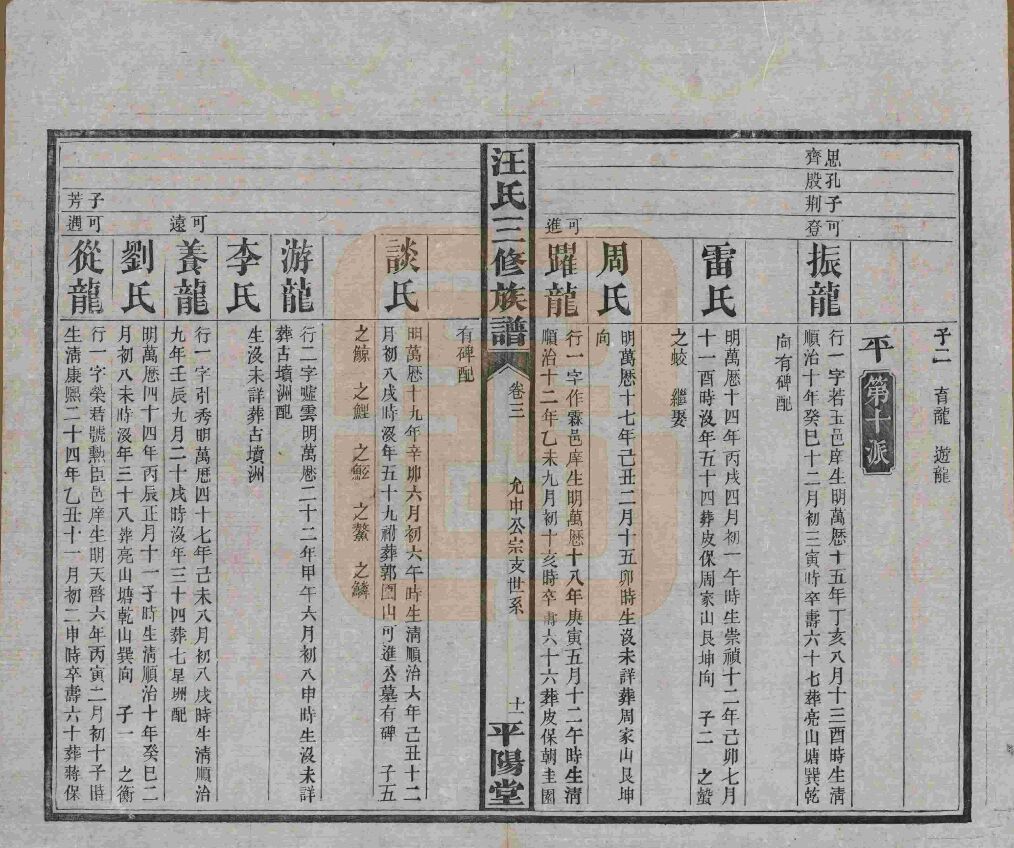 子二 育龍 遊龍
平
第十派
思孔子可
齊殿荆登
振龍
行一字若玉邑庠生明萬厯十五年丁亥八月十三酉時生淸
順治十年癸巳十二月初三寅時卒壽六十七葬亮山塘巽乾
向有碑配
雷氏
明萬厯十四年丙戌四月初一午時生崇禎十二年己卯七月
十一酉時沒年五十四葬皮保周家山艮坤向 子二 之蟄
之蛟 繼娶
周氏
明萬厯十七年己丑二月十五卯時生沒未詳葬周家山艮坤
向
可
進
躍龍
行一字作霖邑庠生明萬厯十八年庚寅五月十二午時生淸
順治十二年乙未九月初十亥時卒壽六十六葬皮保朝圭園
汪氏三修族譜
卷三
允中公宗支世系
十一
平陽堂
有碑配
談氏
明萬厯十九年辛卯六月初六午時生淸順治六年己丑十二
月初八戌時沒年五十九祔葬郭園山可進公墓有碑 子五
之鯨 之鯉 之 之鰲 之鱗
游龍
行二字噓雲明萬厯二十二年甲午六月初八申時生沒未詳
葬古墳洲配
李氏
生沒未詳葬古墳洲
可
遠
養龍
行一字引秀明萬厯四十七年己未八月初八戌時生淸順治
九年壬辰九月二十戌時沒年三十四葬七星洲配
劉氏
明萬厯四十四年丙辰正月十一子時生淸順治十年癸巳二
月初八未時沒年三十八葬亮山塘乾山巽向 子一 之衡
子可
芳週
從龍
行一字榮君號勲臣邑庠生明天啓六年丙寅二月初十子時
生淸康熙二十四年乙丑十一月初二申時卒壽六十葬蔣保